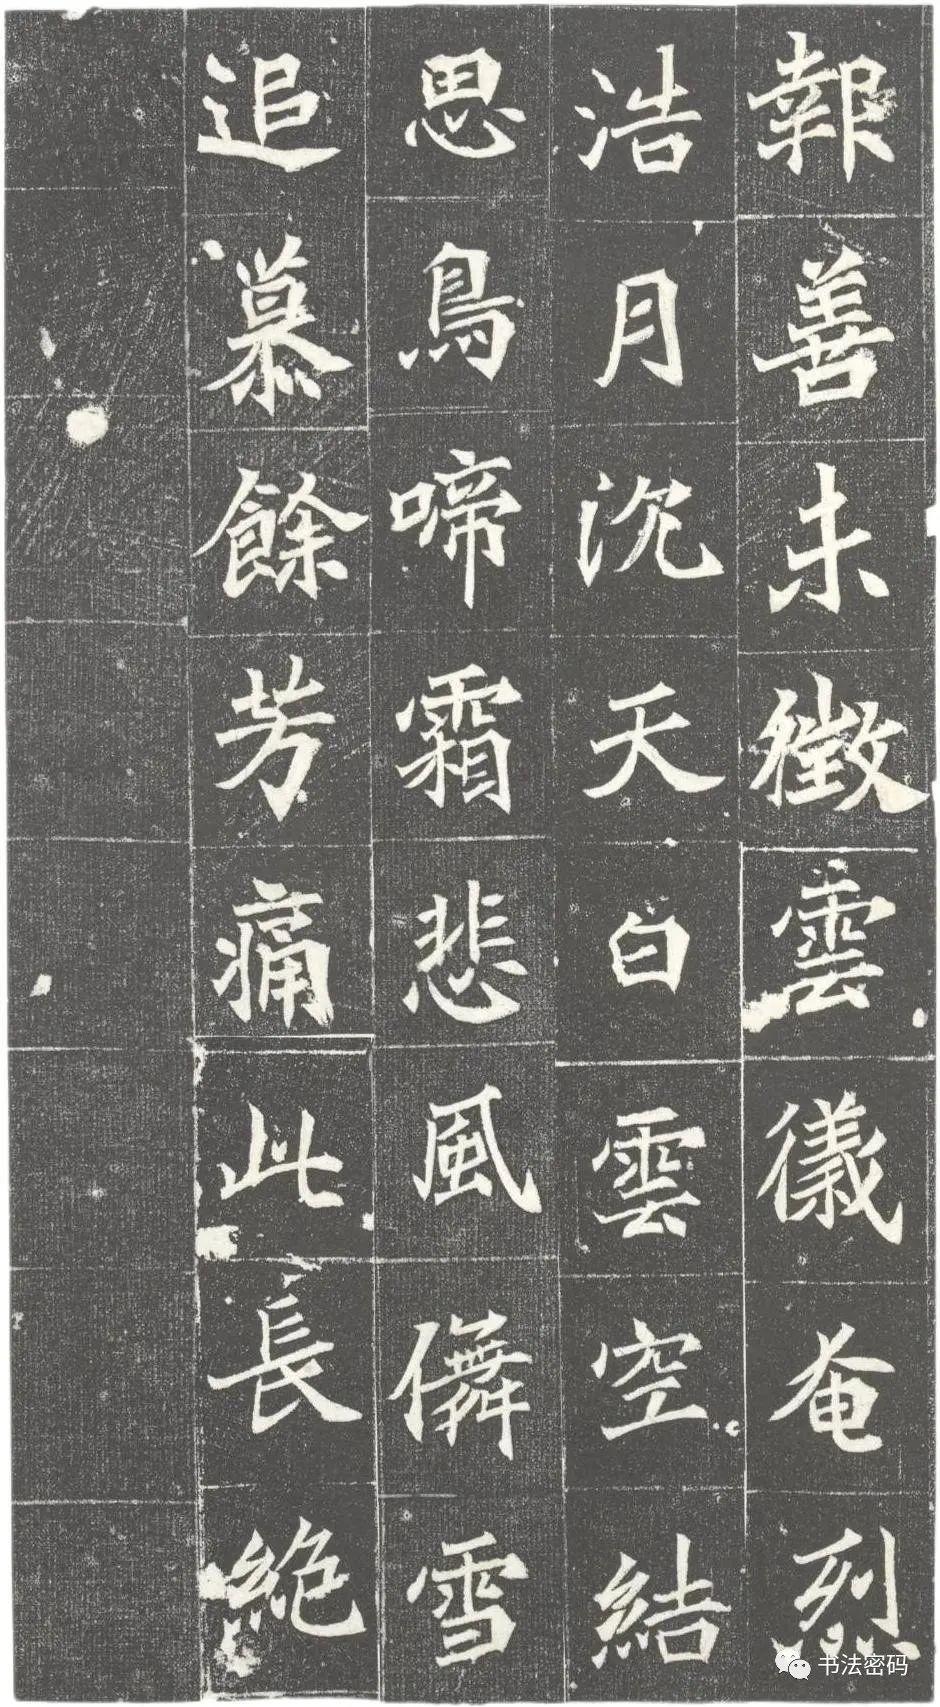 報善未徵雲儀奄烈
浩月沉天白雲空結
思鳥啼霜悲風儛雪
追慕餘芳痛此長絶
书法密码